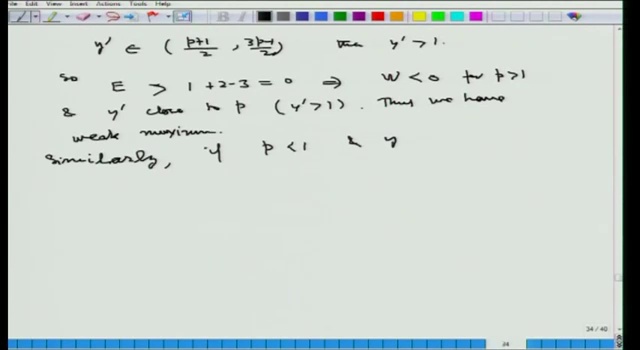 File Edit View Insert Actions Tools Help
y' ∈ ( p+1/2 , 3p-1/2 ) then y' > 1.
So E > 1 + 2 - 3 = 0 ⇒ W < 0 for p > 1
& y' close to p ( y' > 1 ) . Thus we have
weak maximum.
Similarly, if p < 1 & y
34 / 40
34